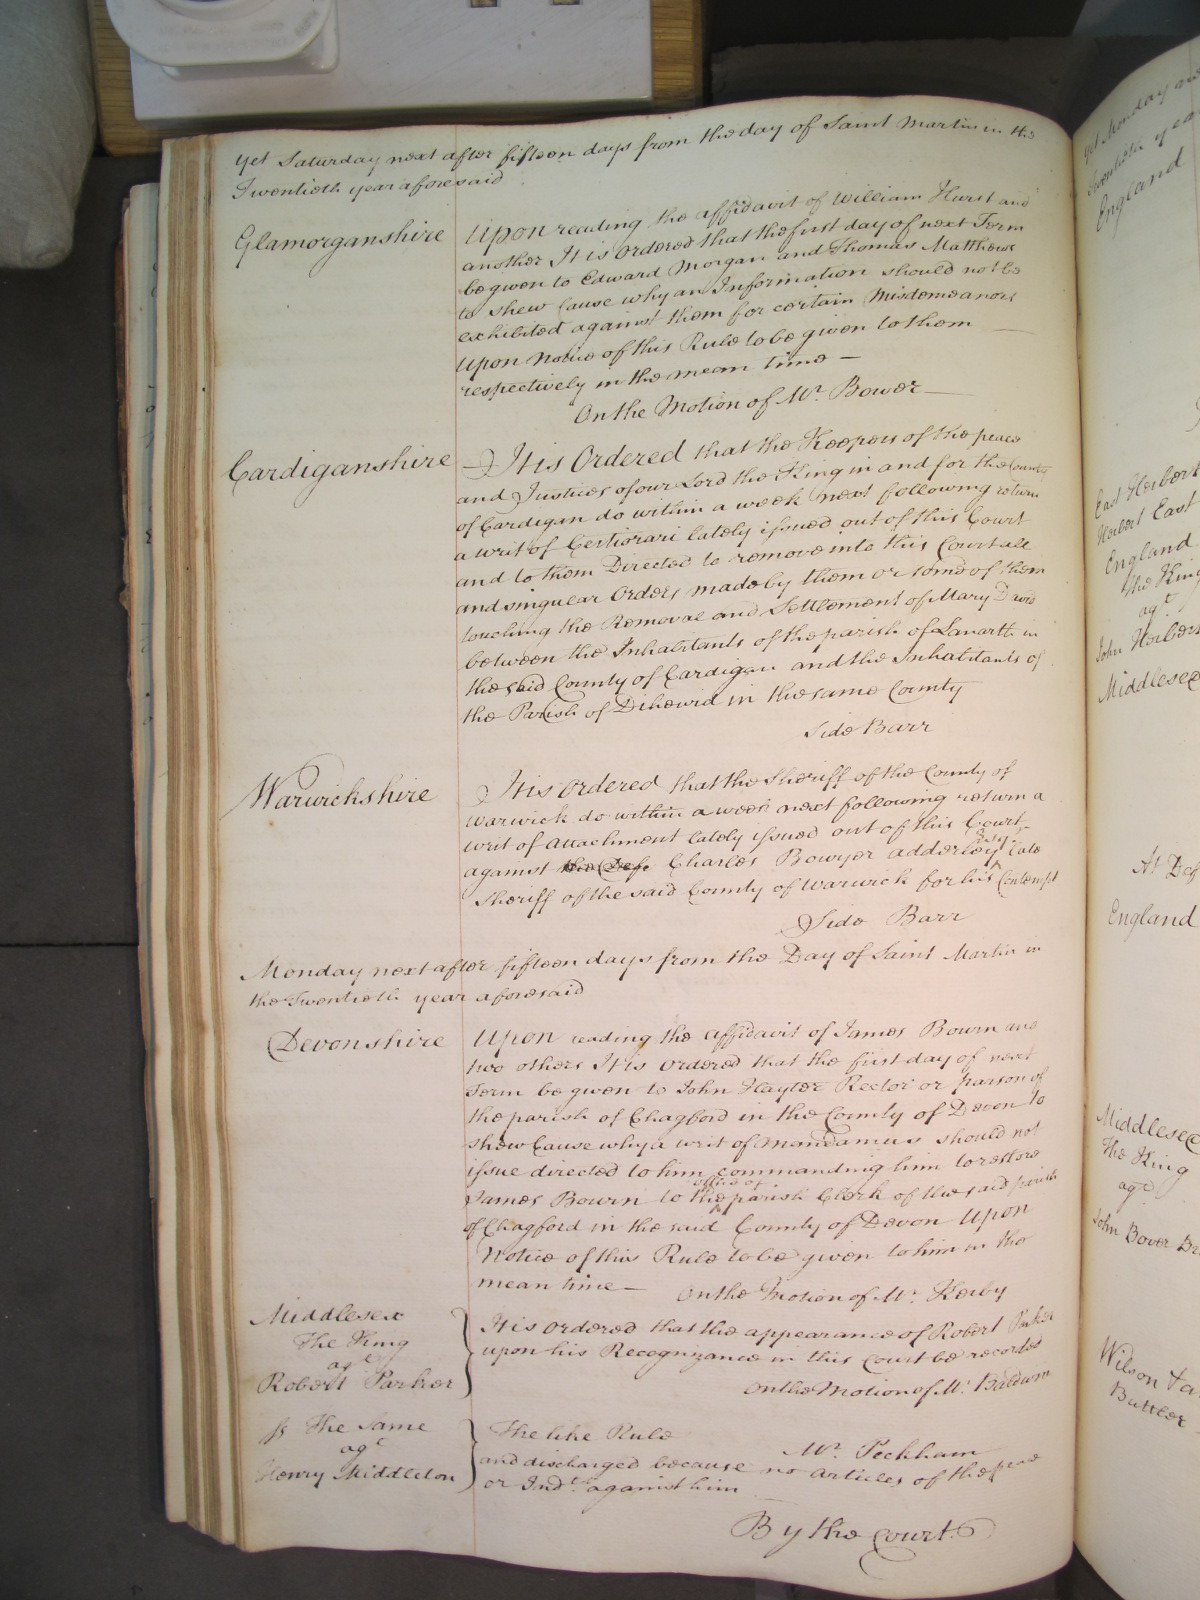 Yet Saturday next after fifteen days from the day of Saint Martin in the
Twentieth year aforesaid
Glamorganshire
Upon reading the affidavit of William Hurst and
another It is ordered that the first day of next Term
be given to Edward Morgan and Thomas Matthews
to shew Cause why an Information should not be
exhibited against them for certain Misdemeanors
Upon Notice of this Rule to be given to them
respectively in the mean time —
On the Motion of Mr. Bower —
Cardiganshire
It is Ordered that the Keepers of the peace
and Justices of our Lord the King in and for the County
of Cardigan do within a week next following return
a writ of Certiorari lately issued out of this Court
and to them Directed to remove into this Court all
and singular Orders made by them or some of them
touching the Removal and Settlement of Mary David
between the Inhabitants of the parish of Lanarth in
the said County of Cardigan and the Inhabitants of
the Parish of Dihewid in the same County
Side Barr
Warwickshire
It is Ordered that the Sheriff of the County of
Warwick do within a week next following return a
writ of attachment lately issued out of this Court
against the Defe Charles Bowyer Adderley Esqr. late
Sheriff of the said County of Warwick for his Contempt
Side Barr
Monday next after fifteen days from the Day of Saint Martin in
the Twentieth year aforesaid
Devonshire
Upon reading the affidavit of James Bourn and
two others It is ordered that the first day of next
Term be given to John Hayter Rector or parson of
the parish of Chagford in the County of Devon to
shew Cause why a writ of Mandamus should not
issue directed to him commanding him to restore
James Bourn to the office of parish Clerk of the said parish
of Chagford in the said County of Devon Upon
Notice of this Rule to be given to him in the
mean time — On the Motion of Mr. Kerby
Middlesex
The King
agt
Robert Parker
It is ordered that the appearance of Robert Parker
upon his Recognizance in this Court be recorded
On the Motion of Mr. Baldwin
ss The Same
agt
Henry Middleton
The like Rule
Mr. Peckham
and discharged because no articles of the peace
or Indt. against him
By the Court
Yet Monday
Twentieth year
England
East Herbert
Herbert East
England
The King
agt
John Herbert
Middlesex
At Def
England
Middlesex
The King
agt
John Bover
Wilson
Buttler